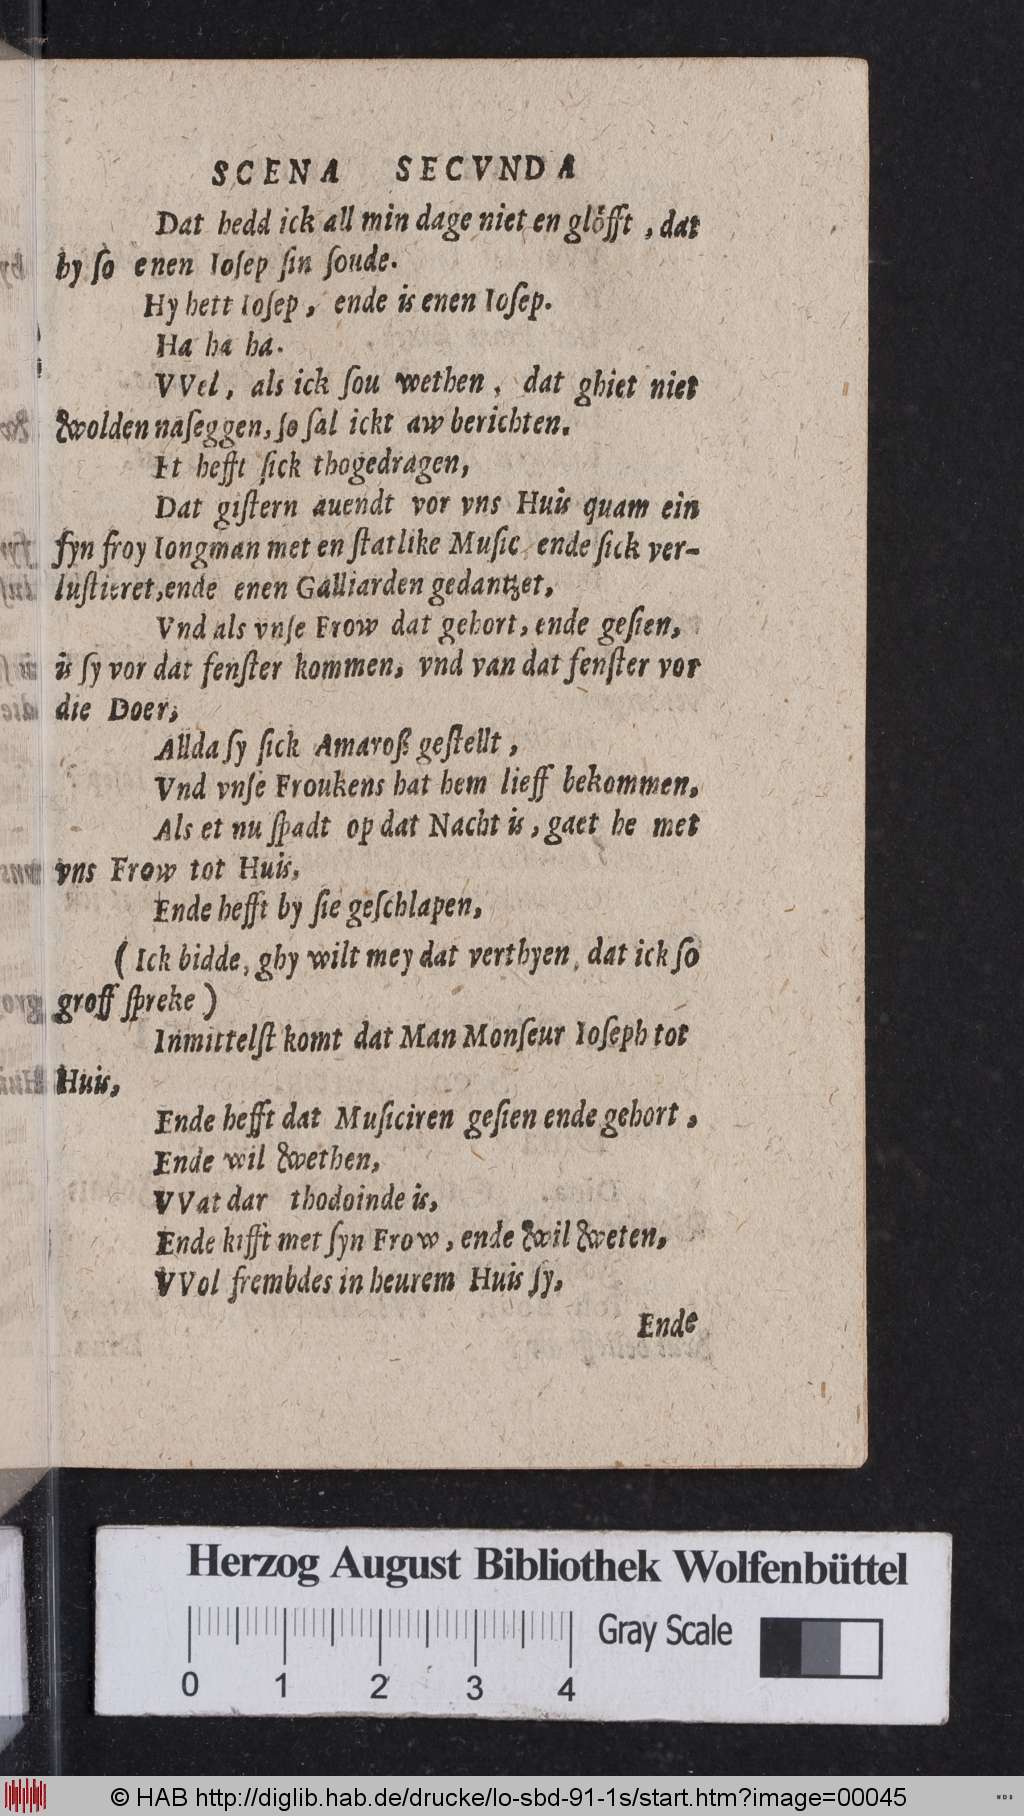 SCENA SECVNDA
Dat hedd ick all min dage niet en glöfft, dat
hy ſo enen Ioſep ſin ſoude.
Hy hett Ioſep, ende is enen Ioſep.
Ha ha ha.
VVel, als ick ſou wethen, dat ghiet niet
wolden naſeggen, ſo ſal ickt aw berichten.
Et hefft ſick thogedragen,
Dat giſtern auendt vor vns Huis quam ein
fyn froy Iongman met en ſtatlike Muſic ende ſick ver-
luſtieret, ende enen Galliarden gedantzet,
Vnd als vnſe Frow dat gehort, ende geſien,
is ſy vor dat fenſter kommen, vnd van dat fenſter vor
die Doer,
Allda ſy ſick Amaroß geſtellt,
Vnd vnſe Froukens hat hem lieff bekommen,
Als et nu ſpadt op dat Nacht is, gaet he met
vns Frow tot Huis,
Ende hefft by ſie geſchlapen,
(Ick bidde, ghy wilt mey dat verthyen, dat ick ſo
groff ſpreke)
Inmittelſt komt dat Man Monſeur Ioſeph tot
Huis,
Ende hefft dat Muſiciren geſien ende gehort,
Ende wil wethen,
VVat dar thodoinde is,
Ende kifft met ſyn Frow, ende wil weten,
VVol frembdes in heurem Huis ſy,
Ende
Herzog August Bibliothek Wolfenbüttel
Gray Scale
0 1 2 3 4
© HAB http://diglib.hab.de/drucke/lo-sbd-91-1s/start.htm?image=00045